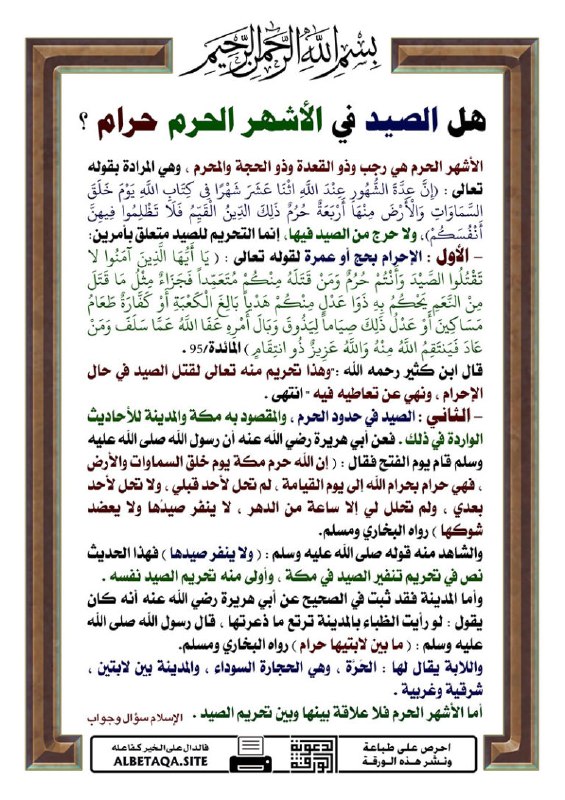 بسم الله الرحمن الرحيم
هل الصيد في الأشهر الحرم حرام ؟
الأشهر الحرم هي رجب وذو القعدة وذو الحجة والمحرم ، وهي المرادة بقوله
تعالى : (إِنَّ عِدَّةَ الشُّهُورِ عِنْدَ اللَّهِ اثْنَا عَشَرَ شَهْرًا فِي كِتَابِ اللَّهِ يَوْمَ خَلَقَ
السَّمَاوَاتِ وَالْأَرْضَ مِنْهَا أَرْبَعَةٌ حُرُمٌ ذَلِكَ الدِّينُ الْقَيِّمُ فَلَا تَظْلِمُوا فِيهِنَّ
أَنْفُسَكُمْ)، ولا حرج من الصيد فيها، إنما التحريم للصيد متعلق بأمرين:
– الأول : الإحرام بحج أو عمرة لقوله تعالى : ( يَا أَيُّهَا الَّذِينَ آمَنُوا لا
تَقْتُلُوا الصَّيْدَ وَأَنْتُمْ حُرُمٌ وَمَنْ قَتَلَهُ مِنْكُمْ مُتَعَمِّداً فَجَزَاءٌ مِثْلُ مَا قَتَلَ
مِنَ النَّعَمِ يَحْكُمُ بِهِ ذَوَا عَدْلٍ مِنْكُمْ هَدْياً بَالِغَ الْكَعْبَةِ أَوْ كَفَّارَةٌ طَعَامُ
مَسَاكِينَ أَوْ عَدْلُ ذَلِكَ صِيَاماً لِيَذُوقَ وَبَالَ أَمْرِهِ عَفَا اللَّهُ عَمَّا سَلَفَ وَمَنْ
عَادَ فَيَنْتَقِمُ اللَّهُ مِنْهُ وَاللَّهُ عَزِيزٌ ذُو انتِقَامٍ ) المائدة/95 .
قال ابن كثير رحمه الله :"وهذا تحريم منه تعالى لقتل الصيد في حال
الإحرام ، ونهي عن تعاطيه فيه " انتهى .
– الثاني : الصيد في حدود الحرم ، والمقصود به مكة والمدينة للأحاديث
الواردة في ذلك . فعن أبي هريرة رضي الله عنه أن رسول الله صلى الله عليه
وسلم قام يوم الفتح فقال : ( إن الله حرم مكة يوم خلق السماوات والأرض
، فهي حرام بحرام الله إلى يوم القيامة ، لم تحل لأحد قبلي ، ولا تحل لأحد
بعدي ، ولم تحلل لي إلا ساعة من الدهر ، لا ينفر صيدُها ولا يعضد
شوكها ) رواه البخاري ومسلم.
والشاهد منه قوله صلى الله عليه وسلم : ( ولا ينفر صيدها ) فهذا الحديث
نص في تحريم تنفير الصيد في مكة ، وأولى منه تحريم الصيد نفسه .
وأما المدينة فقد ثبت في الصحيح عن أبي هريرة رضي الله عنه أنه كان
يقول : لو رأيت الظباء بالمدينة ترتع ما ذعرتها ، قال رسول الله صلى الله
عليه وسلم : ( ما بين لابتيها حرام ) رواه البخاري ومسلم.
واللابة يقال لها : الحَرَّة ، وهي الحجارة السوداء ، والمدينة بين لابتين ،
شرقية وغربية .
أما الأشهر الحرم فلا علاقة بينها وبين تحريم الصيد . الإسلام سؤال وجواب
احرص على طباعة
ونشر هذه الورقة
الدعوية
الورقة
فالدال على الخير كفاعله
ALBETAQA.SITE